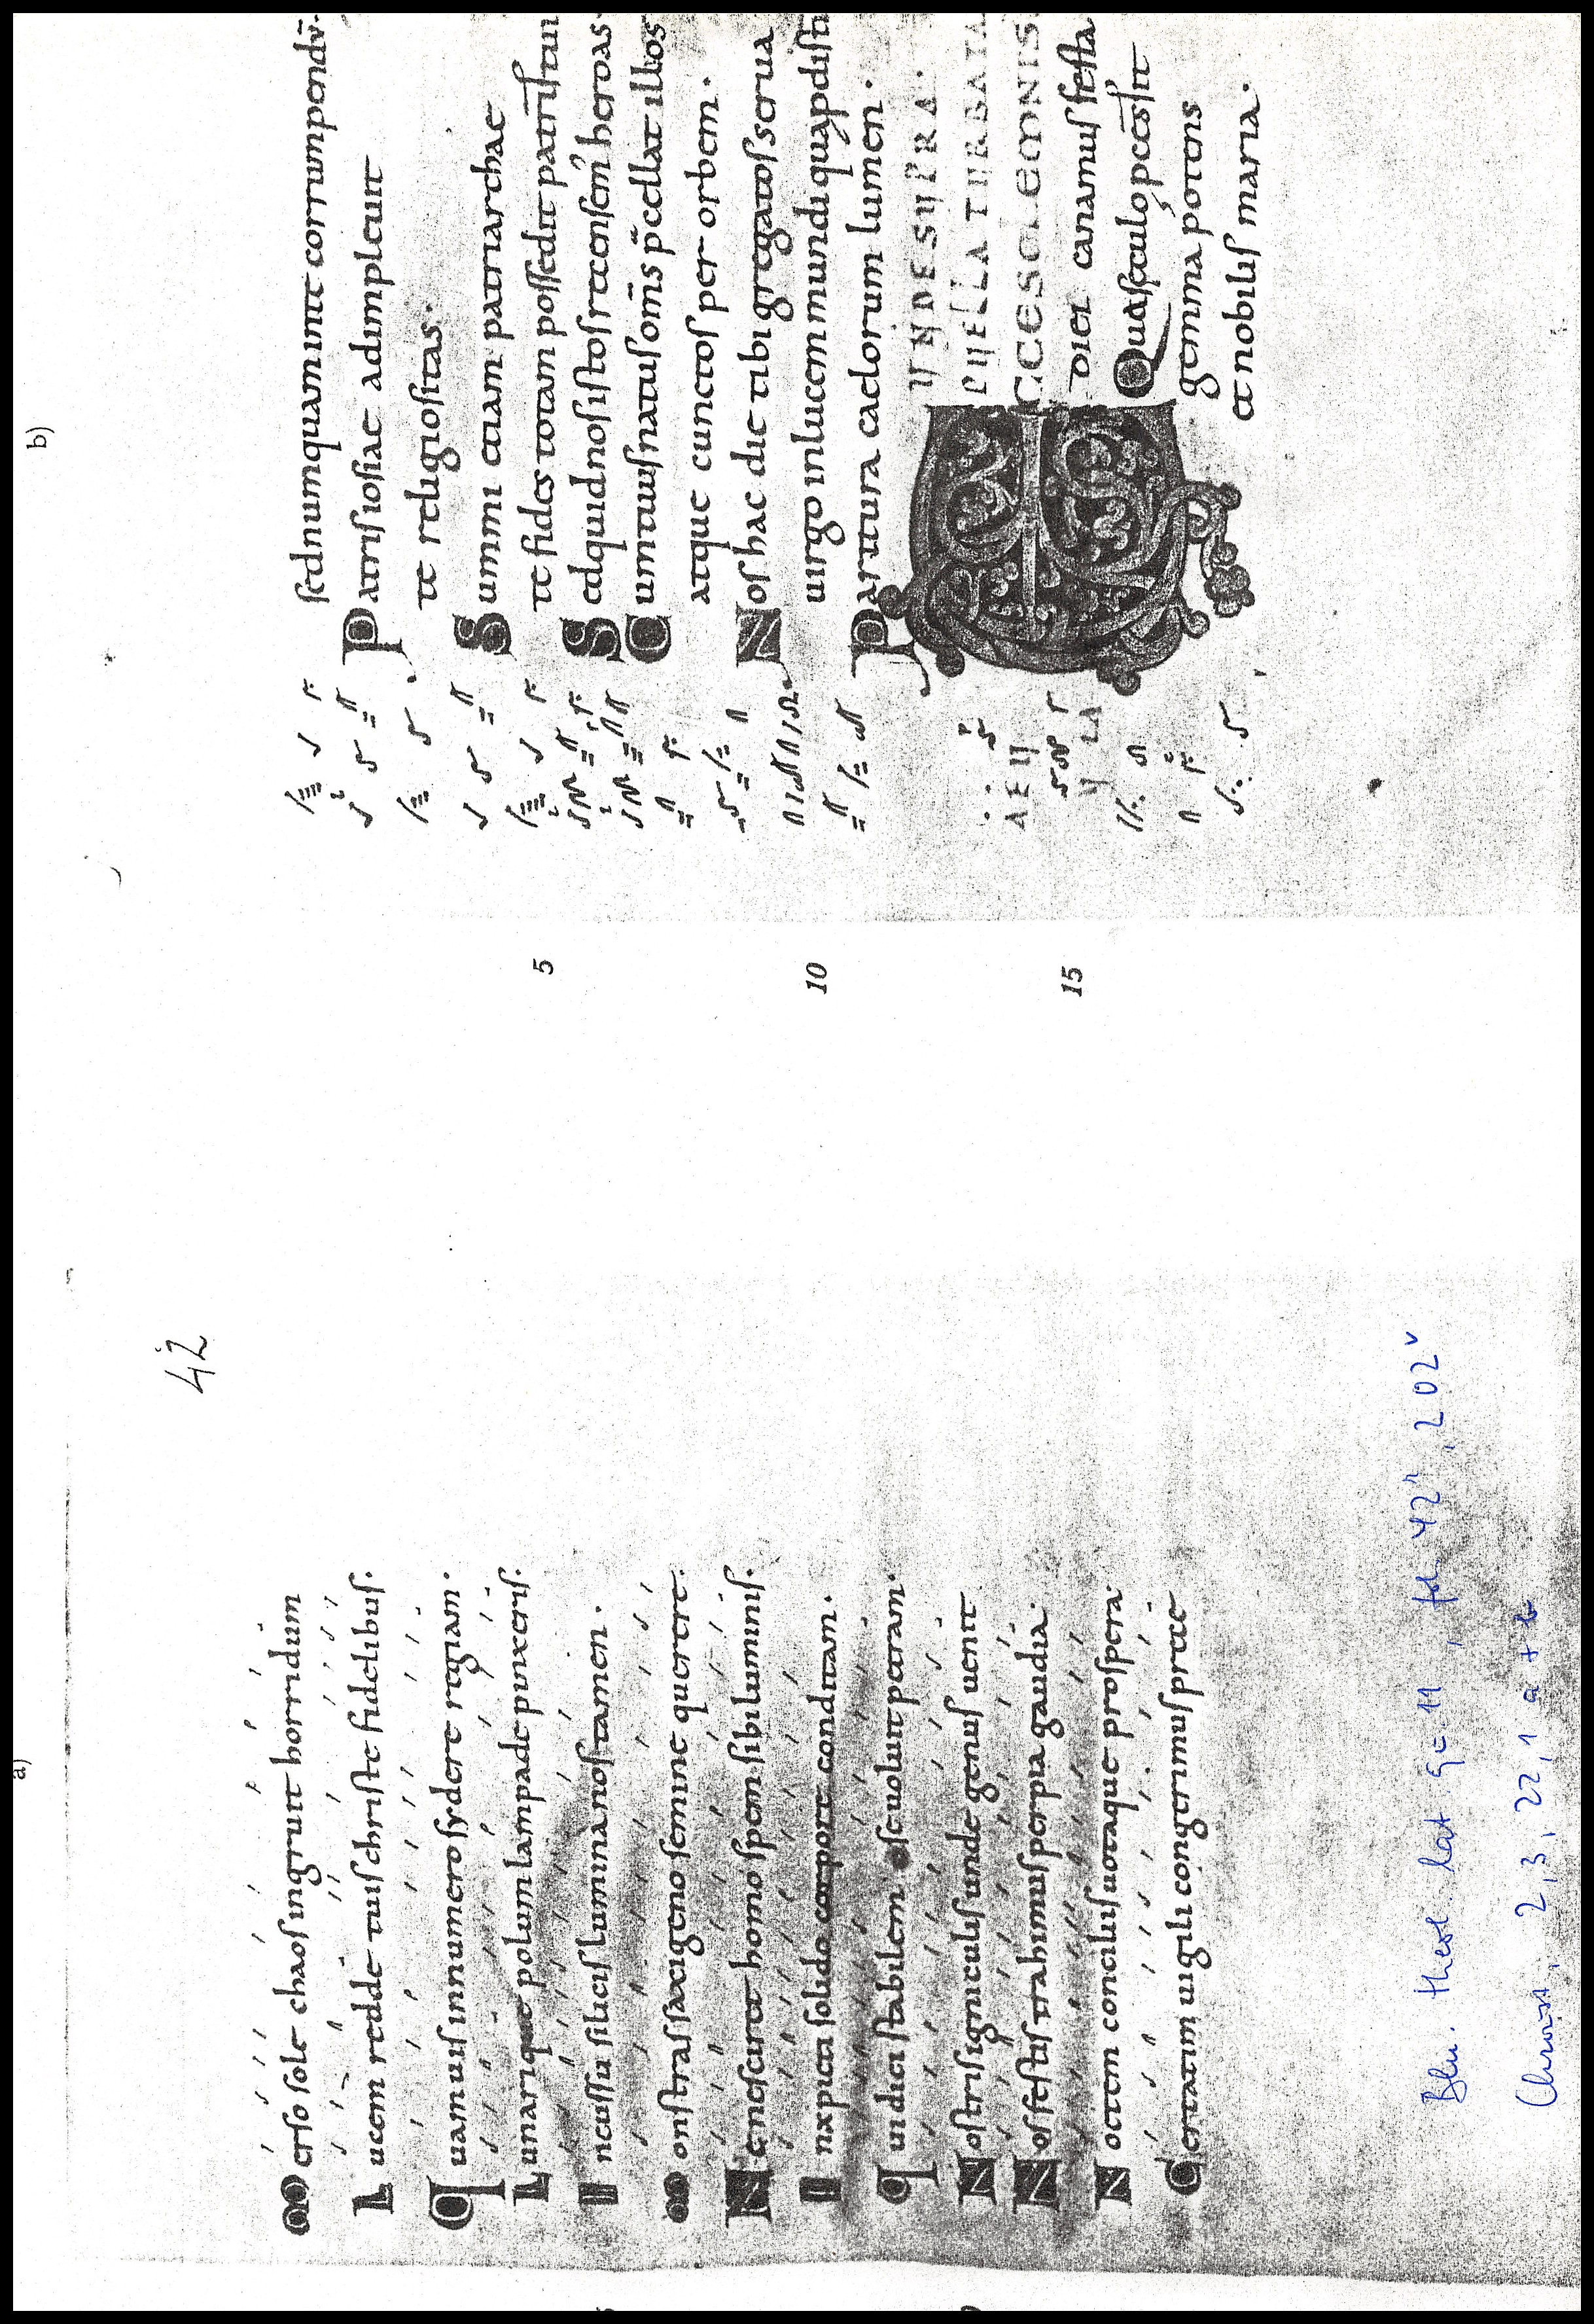 a)
42
Merso sole chaos ingruit horridum
Lucem redde tuis christe fidelibus.
Quamuis innumero sydere regiam.
Lunarique polum lampade pinxeris.
Incussu silicis lumina nos tamen.
Monstras saxigeno semine querere.
Ne nesciret homo spem sibi luminis.
Inxpicti solido corpore conditam.
Qui dici stabilem se uoluit petram.
Nostris igniculis unde genus uenit
Nos festis trahimus per pia gaudia.
Noctem conciliis uotaque prospera
Certatim uigili congerimus prece
Bln. theol. lat. q=11, fol. 42r, 202v
Chroust, 2,3,22,1 a+b
b)
sed numquam inte corrumpendū.
Patrisiosiae adimpleuit
te religiositas.
Summi etiam patriarchae
te fides totam possedit patris tui
Sed quid nos istos recensem' heroas
Cum tuus natus om̄s p̄cellat illos
atque cunctos per orbem.
Nos hac die tibi gregatos serua
uirgo in lucem mundi qua p̄disti
Paritura caelorum lumen.
5
10
15
VNDE SUPRA.
PUELLA TURBATA
CONCELEBREMUS
diei canamus festa
Qua sęculo pcess̄it
gemma potens
et nobilis maria.
AEU